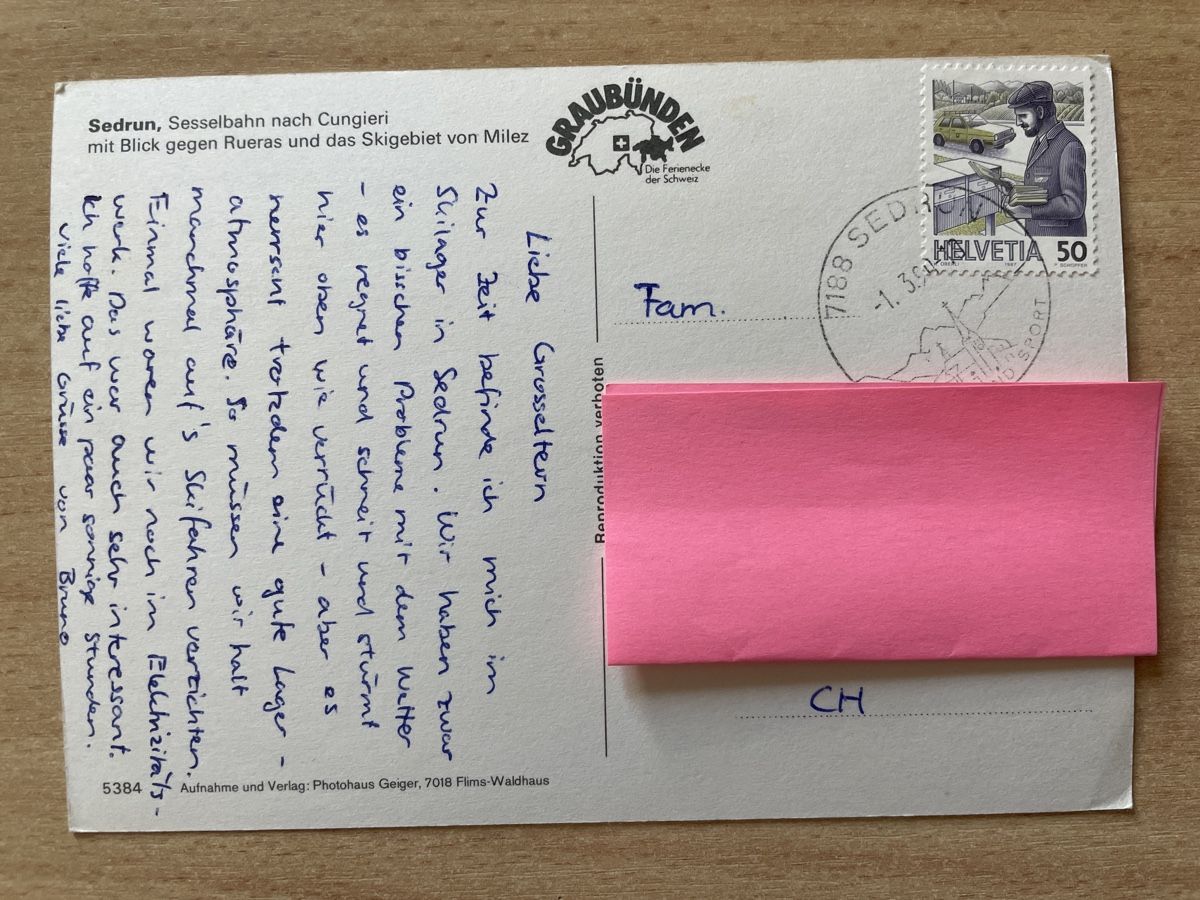 Sedrun, Sesselbahn nach Cungieri
mit Blick gegen Rueras und das Skigebiet von Milez
GRAUBÜNDEN
Die Ferienecke
der Schweiz
Liebe Grosseltern
Zur Zeit befinde ich mich im
Skilager in Sedrun. Wir haben zwar
ein bischen Probleme mit dem Wetter
- es regnet und schneit und stürmt
hier oben wie verrückt - aber es
herrscht trotzdem eine gute Lager-
atmosphäre. So müssen wir halt
manchmal auf's Skifahren verzichten.
Einmal waren wir noch im Elektrizitäts-
werk. Das war auch sehr interessant.
Ich hoffe auf ein paar sonnige Stunden.
Viele liebe Grüsse von Bruno
5384 Aufnahme und Verlag: Photohaus Geiger, 7018 Flims-Waldhaus
Reproduktion verboten
HELVETIA 50
1987
7188 SEDRUN
-1. 3.
SPORT
Fam.
CH